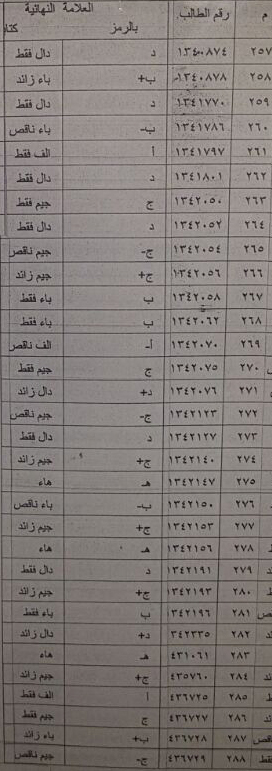 م رقم الطالب العلامة النهائية
بالرمز كتا
٢٥٧ ١٣٤٠٨٧٤ د دال فقط
٢٥٨ ١٣٤٠٨٧٨ ب+ باء زائد
٢٥٩ ١٣٤١٧٧٠ د دال فقط
٢٦٠ ١٣٤١٧٨٦ ب- باء ناقص
٢٦١ ١٣٤١٧٩٧ أ الف فقط
٢٦٢ ١٣٤١٨٠١ د دال فقط
٢٦٣ ١٣٤٢٠٥٠ ج جيم فقط
٢٦٤ ١٣٤٢٠٥٢ د دال فقط
٢٦٥ ١٣٤٢٠٥٤ ج- جيم ناقص
٢٦٦ ١٣٤٢٠٥٦ ج+ جيم زائد
٢٦٧ ١٣٤٢٠٥٨ ب باء فقط
٢٦٨ ١٣٤٢٠٦٢ ب باء فقط
٢٦٩ ١٣٤٢٠٧٠ أ- الف ناقص
٢٧٠ ١٣٤٢٠٧٥ ج جيم فقط
٢٧١ ١٣٤٢٠٧٦ د+ دال زائد
٢٧٢ ١٣٤٢١٢٣ ج- جيم ناقص
٢٧٣ ١٣٤٢١٢٧ د دال فقط
٢٧٤ ١٣٤٢١٤٠ ج+ جيم زائد
٢٧٥ ١٣٤٢١٤٧ هـ هاء
٢٧٦ ١٣٤٢١٥٠ ب- باء ناقص
٢٧٧ ١٣٤٢١٥٣ ج+ جيم زائد
٢٧٨ ١٣٤٢١٥٦ هـ هاء
٢٧٩ ١٣٤٢١٩١ د دال فقط
٢٨٠ ١٣٤٢١٩٣ ج+ جيم زائد
٢٨١ ١٣٤٢١٩٦ ب باء فقط
٢٨٢ ٣٤٢٣٣٥ د+ دال زائد
٢٨٣ ٤٣١٠٦١ هـ هاء
٢٨٤ ٤٣٥٧٦٠ ج+ جيم زائد
٢٨٥ ٤٣٦٧٢٥ أ الف فقط
٢٨٦ ٤٣٦٧٢٧ ج جيم فقط
٢٨٧ ٤٣٦٧٢٨ ب+ باء زائد
٢٨٨ ٤٣٦٧٢٩ ج- جيم ناقص